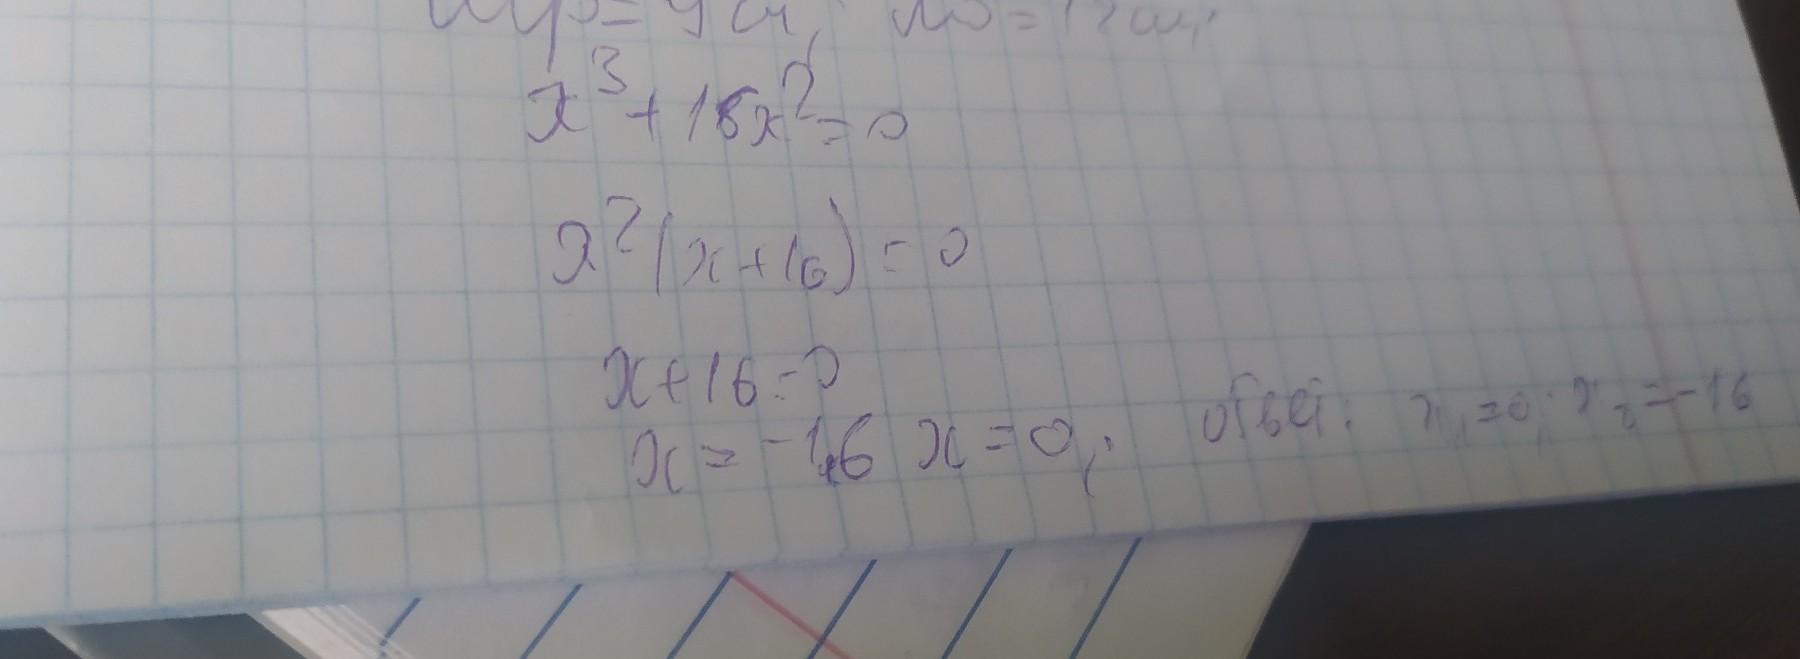 x³+16x²=0
x²(x+16)=0
x+16=0
x=-16 x=0;
ответ: x₁=0; x₂=-16